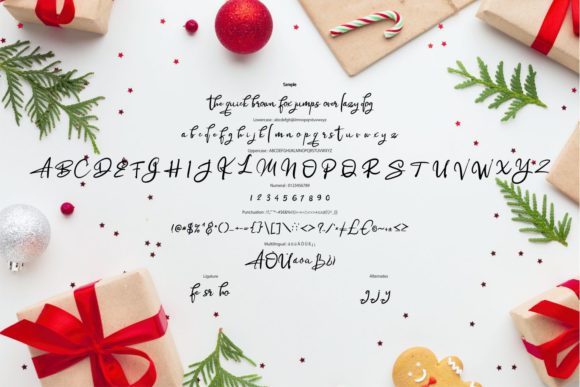 Sample
the quick brown fox jumps over lazy dog
Lowercase : abcdefghijklmnopqrstuvwxyz
a b c d e f g h i j k l m n o p q r s t u v w x y z
Uppercase : ABCDEFGHIJKLMNOPQRSTUVWXYZ
A B C D E F G H I J K L M N O P Q R S T U V W X Y Z
Numeral : 0123456789
1 2 3 4 5 6 7 8 9 0
Punctuation :
Multilingual :
Ligature Alternates
fe sr ho